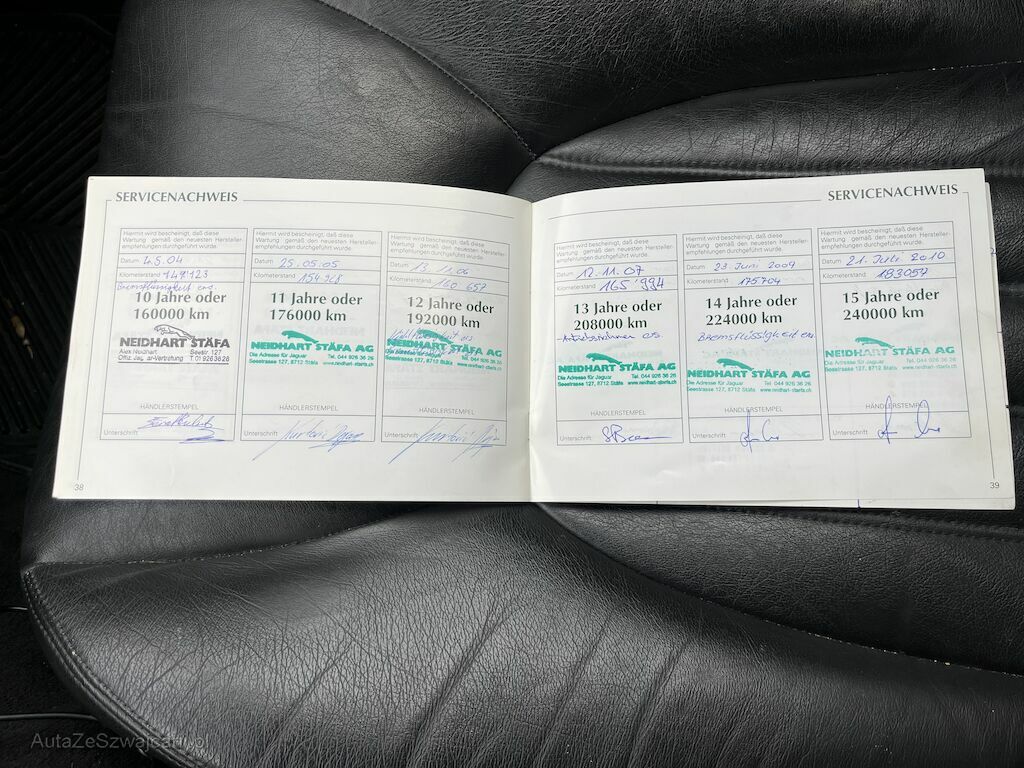 SERVICENACHWEIS
Hiermit wird bescheinigt, daß diese
Wartung gemäß den neuesten Hersteller-
empfehlungen durchgeführt wurde.
Datum 4.5.04
Kilometerstand 147'123
Bremsflüssigkeit ern.
10 Jahre oder
160000 km
NEIDHART STÄFA
Alex Neidhart Seestr. 127
Offiz. Jaguar-Vertretung T. 01 926 36 26
HÄNDLERSTEMPEL
Unterschrift
Hiermit wird bescheinigt, daß diese
Wartung gemäß den neuesten Hersteller-
empfehlungen durchgeführt wurde.
Datum 25.05.05
Kilometerstand 154'968
11 Jahre oder
176000 km
NEIDHART STÄFA AG
Die Adresse für Jaguar Tel. 044 926 36 26
Seestrasse 127, 8712 Stäfa www.neidhart-staefa.ch
HÄNDLERSTEMPEL
Unterschrift
Hiermit wird bescheinigt, daß diese
Wartung gemäß den neuesten Hersteller-
empfehlungen durchgeführt wurde.
Datum 13.11.06
Kilometerstand 160 657
12 Jahre oder
192000 km
NEIDHART STÄFA AG
Tel. 044 926 36 26
HÄNDLERSTEMPEL
Unterschrift
38
SERVICENACHWEIS
Hiermit wird bescheinigt, daß diese
Wartung gemäß den neuesten Hersteller-
empfehlungen durchgeführt wurde.
Datum 12.11.07
Kilometerstand 165'994
13 Jahre oder
208000 km
NEIDHART STÄFA AG
Die Adresse für Jaguar Tel. 044 926 36 26
Seestrasse 127, 8712 Stäfa www.neidhart-staefa.ch
HÄNDLERSTEMPEL
Unterschrift
Hiermit wird bescheinigt, daß diese
Wartung gemäß den neuesten Hersteller-
empfehlungen durchgeführt wurde.
Datum 23. Juni 2009
Kilometerstand 175704
14 Jahre oder
224000 km
Bremsflüssigkeit ern.
NEIDHART STÄFA AG
Die Adresse für Jaguar Tel. 044 926 36 26
Seestrasse 127, 8712 Stäfa www.neidhart-staefa.ch
HÄNDLERSTEMPEL
Unterschrift
Hiermit wird bescheinigt, daß diese
Wartung gemäß den neuesten Hersteller-
empfehlungen durchgeführt wurde.
Datum 21. Juli 2010
Kilometerstand 183057
15 Jahre oder
240000 km
NEIDHART STÄFA AG
Die Adresse für Jaguar Tel. 044 926 36 26
Seestrasse 127, 8712 Stäfa www.neidhart-staefa.ch
HÄNDLERSTEMPEL
Unterschrift
39
AutaZeSzwajcarii.pl